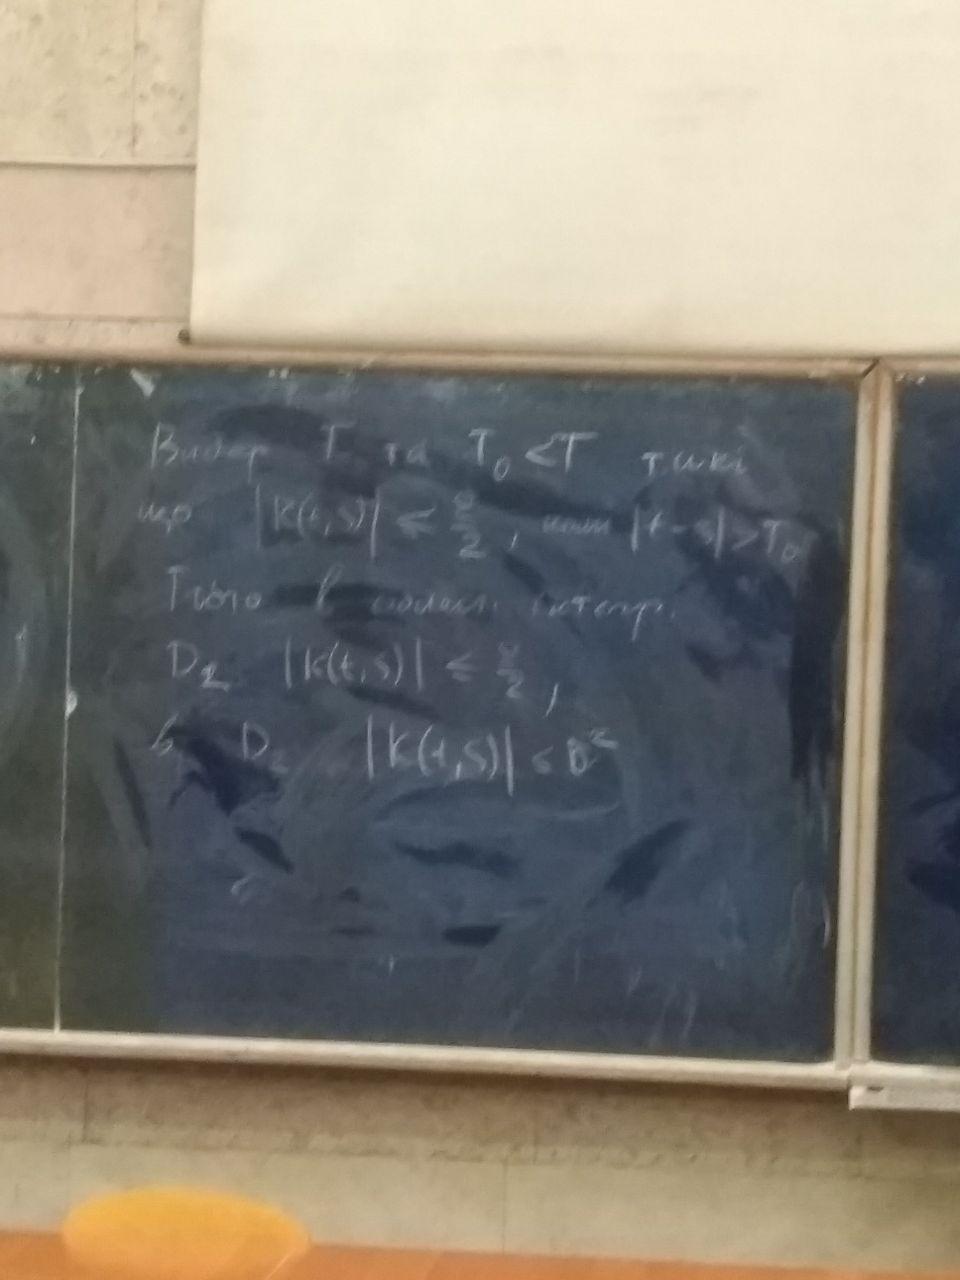 Вибер T та T₀ < T такі
що |K(t,s)| ≤ ε/2, коли |t-s| > T₀
Тоді в
D₁ |K(t,s)| ≤ ε/2,
в D₂ |K(t,s)| ≤ D²